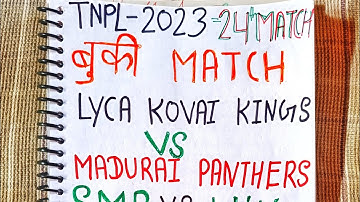 TNPL-2023-24 MATCH
बुकी MATCH
LYCA KOVAI KINGS
VS
MADURAI PANTHERS
SMP VS